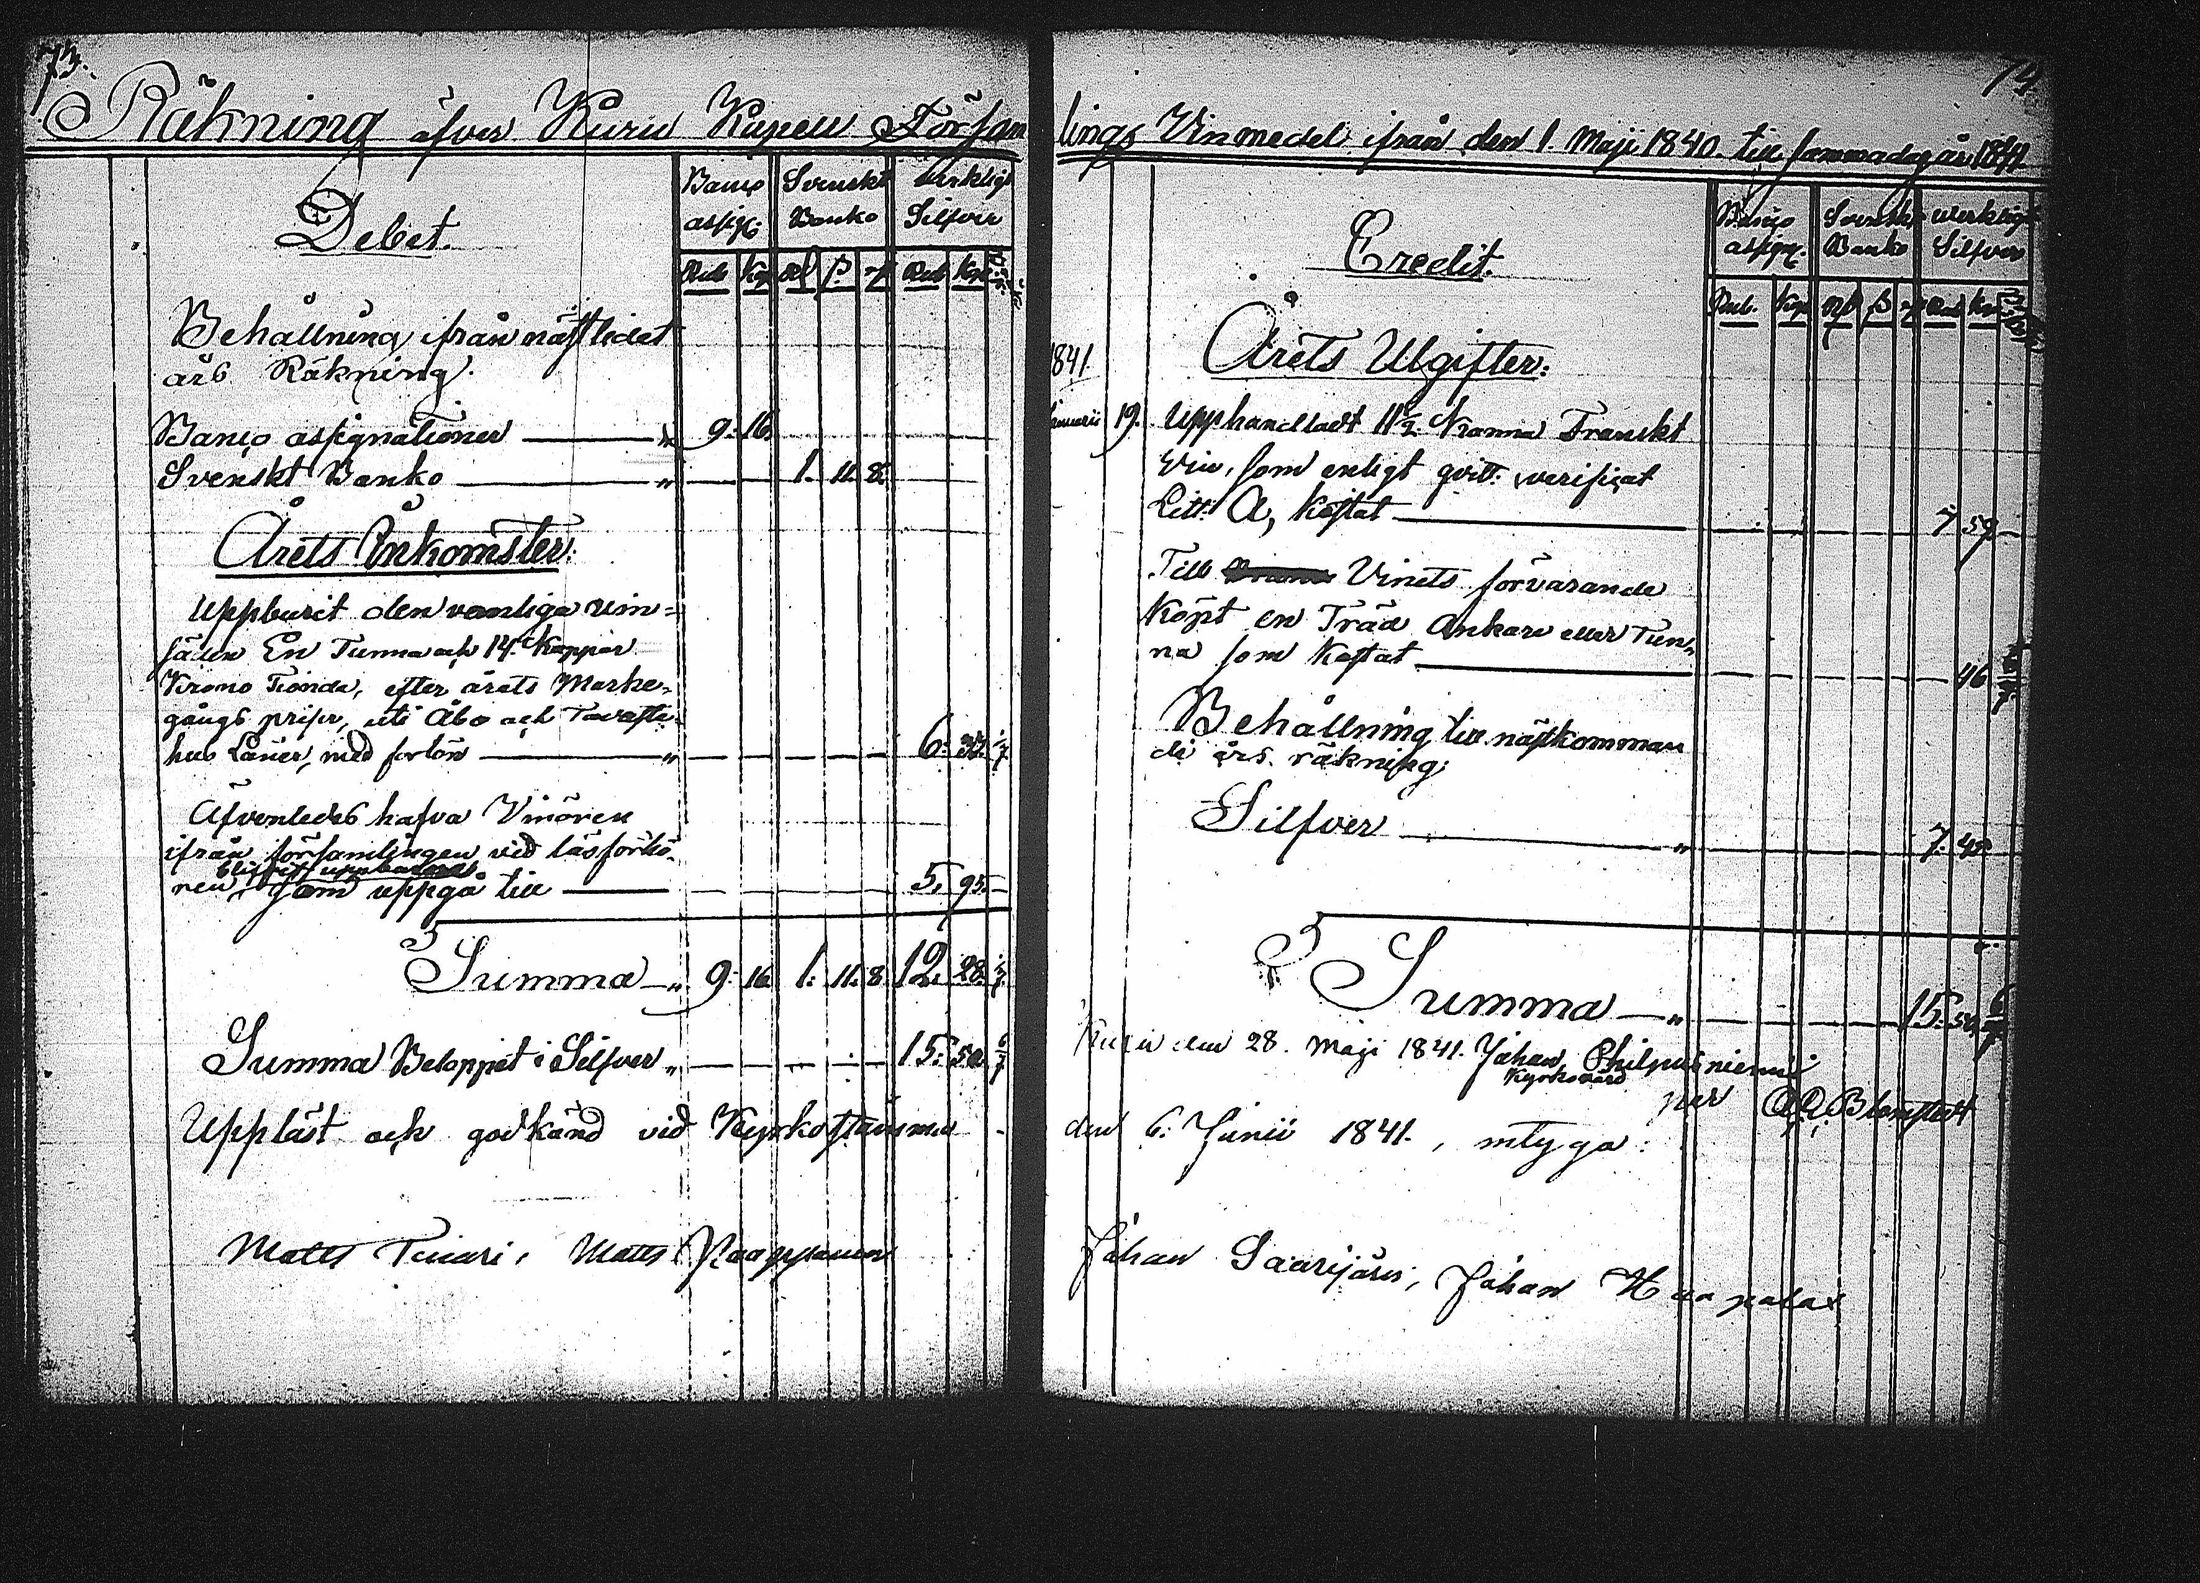 73.
Räkning öfver Kuru Kapell Församlings Vinmedel ifrån den 1. Maji 1840. till samma dag år 1841
Debet.
Banco assign.
Svenskt Banko
Verkligt Silfver
Rub. Kop. Rd. ß. rf. Rub. Kop.
Behållning ifrån nästledet
års Räkning.
Banco assignationer — " 9. 16.
Svenskt Banko — " 1. 11. 8.
Årets Inkomster:
Uppburit den vanliga vin-
säden En Tunna och 14. Kappar
Krono Tionde, efter årets Marke-
gångs priser, uti Åbo och Tavaste-
hus Läner, med forlön — " 6. 33. 1/7
Äfvenledes hafva Vinören
ifrån församlingen vid läsförhö-
ren, blifvit uppburne
som uppgå till — 5. 95.
Summa — " 9. 16. 1. 11. 8. 12. 28. 1/7
Summa Beloppet i Silfver " 15. 50. 6/7
Uppläst och godkänd vid Kyrkostämma
Matts Tuuri, Matts
74
Credit.
Banco assign.
Svenskt Banko
Verkligt Silfver
Rub. Kop. Rd. ß. rf. Rub. Kop.
1841.
Årets Utgifter:
Januarii 19. Upphandladt 11 1/2 Kanna Franskt
Vin, som enligt qvitt. verificat
Litt. A, kostat — 7 59
Till Vinets förvarande
köpt en Träd Ankare eller Tun-
na som kostat — 46 6/7
Behållning till nästkomman
de års räkning;
Silfver — " 7. 45
Summa — " 15. 50. 6/7
Kuru den 28. Maji 1841. Johan Philpusniemi
Kyrkovärd
per A. A. Blomstedt
den 6. Junii 1841., intyga:
Johan Saarijärvi, Johan Haapalax